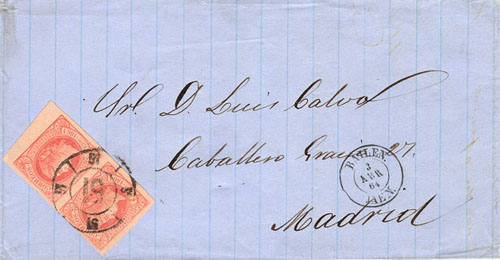 Srl. D. Luis Calvo
Caballero Gracia 27.
Madrid
BAILEN.
3
ABR
64
JAEN.
19